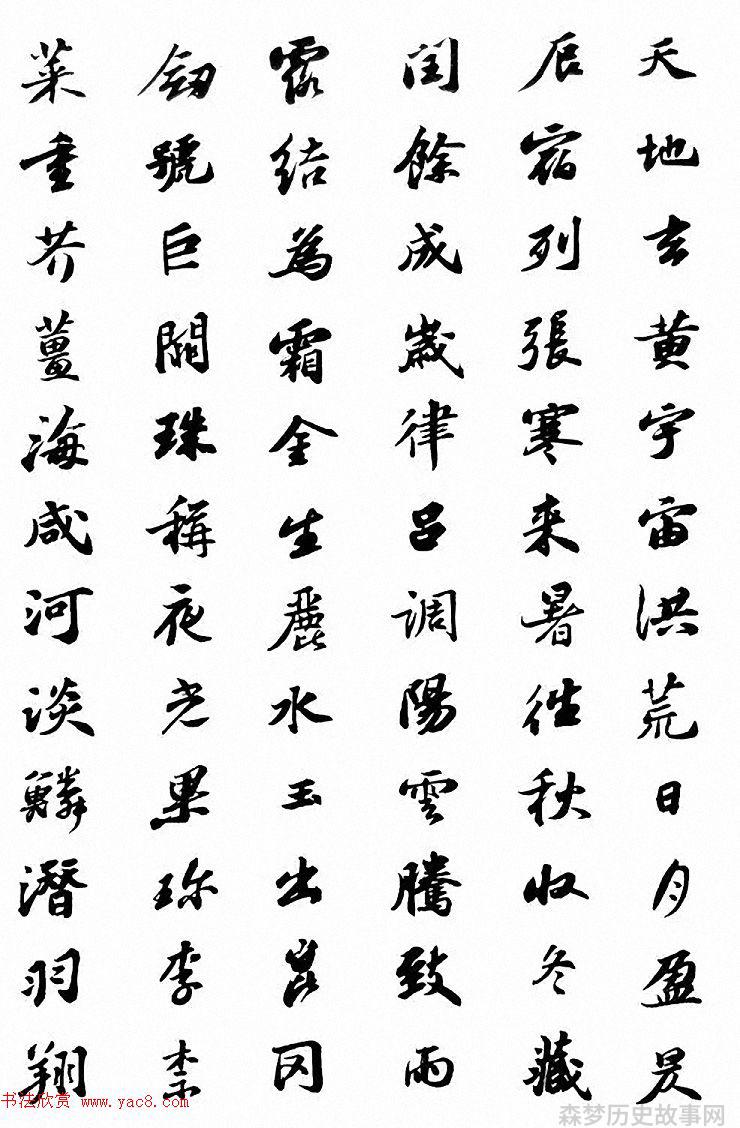 天地玄黄宇宙洪荒日月盈昃
辰宿列張寒来暑往秋收冬藏
閏餘成歲律吕調陽雲騰致雨
露結為霜金生麗水玉出崑岡
劒號巨闕珠稱夜光果珎李柰
菜重芥薑海咸河淡鱗潛羽翔
书法欣赏 www.yac8.com
森梦历史故事网